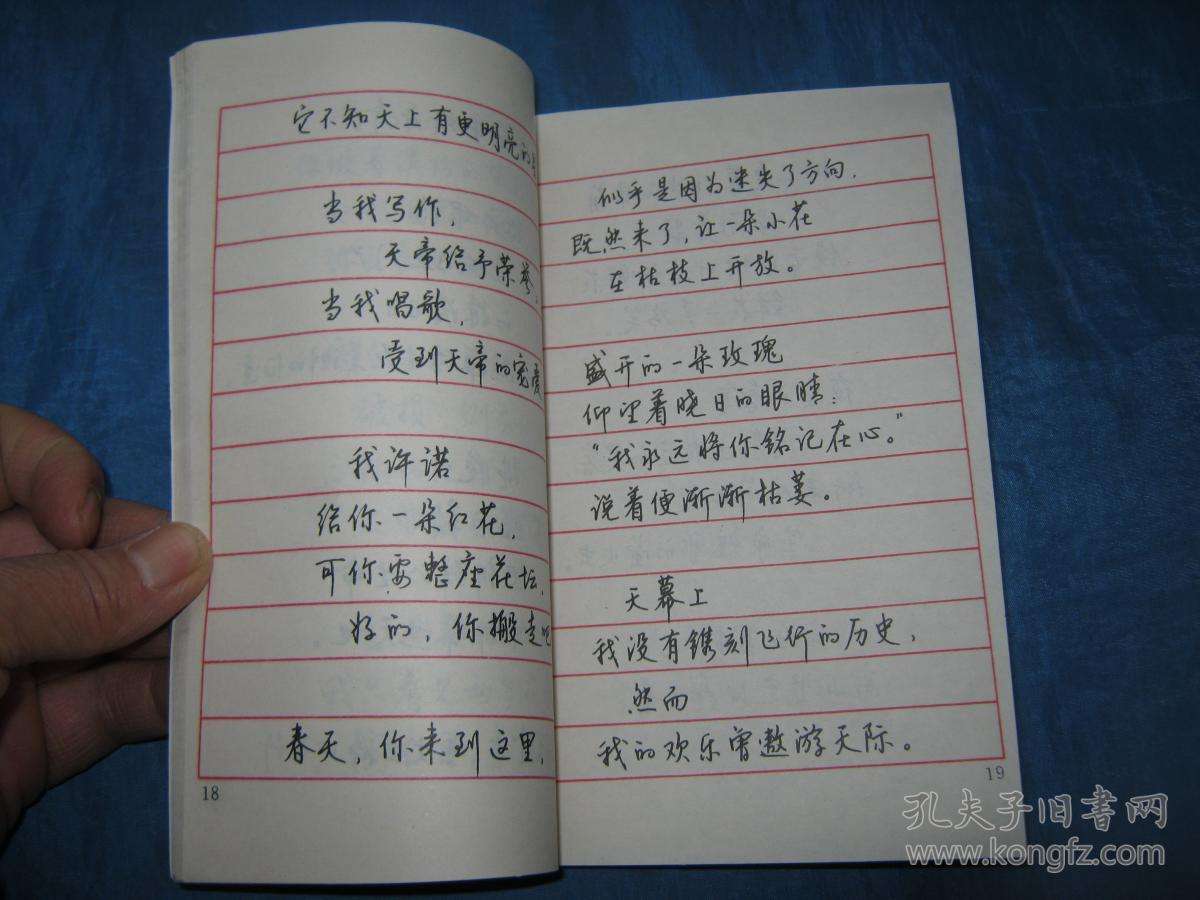 它不知天上有更明亮的
当我写作，
天帝给予荣誉，
当我唱歌，
受到天帝的宠爱
我许诺
给你一朵红花，
可你要整座花坛，
好的，你搬走吧
春天，你来到这里，
18
似乎是因为迷失了方向，
既然来了，让一朵小花
在枯枝上开放。
盛开的一朵玫瑰
仰望着晓日的眼睛：
“我永远将你铭记在心。”
说着便渐渐枯萎。
天幕上
我没有镌刻飞行的历史，
然而
我的欢乐曾遨游天际。
19
孔夫子旧书网
www.kongfz.com